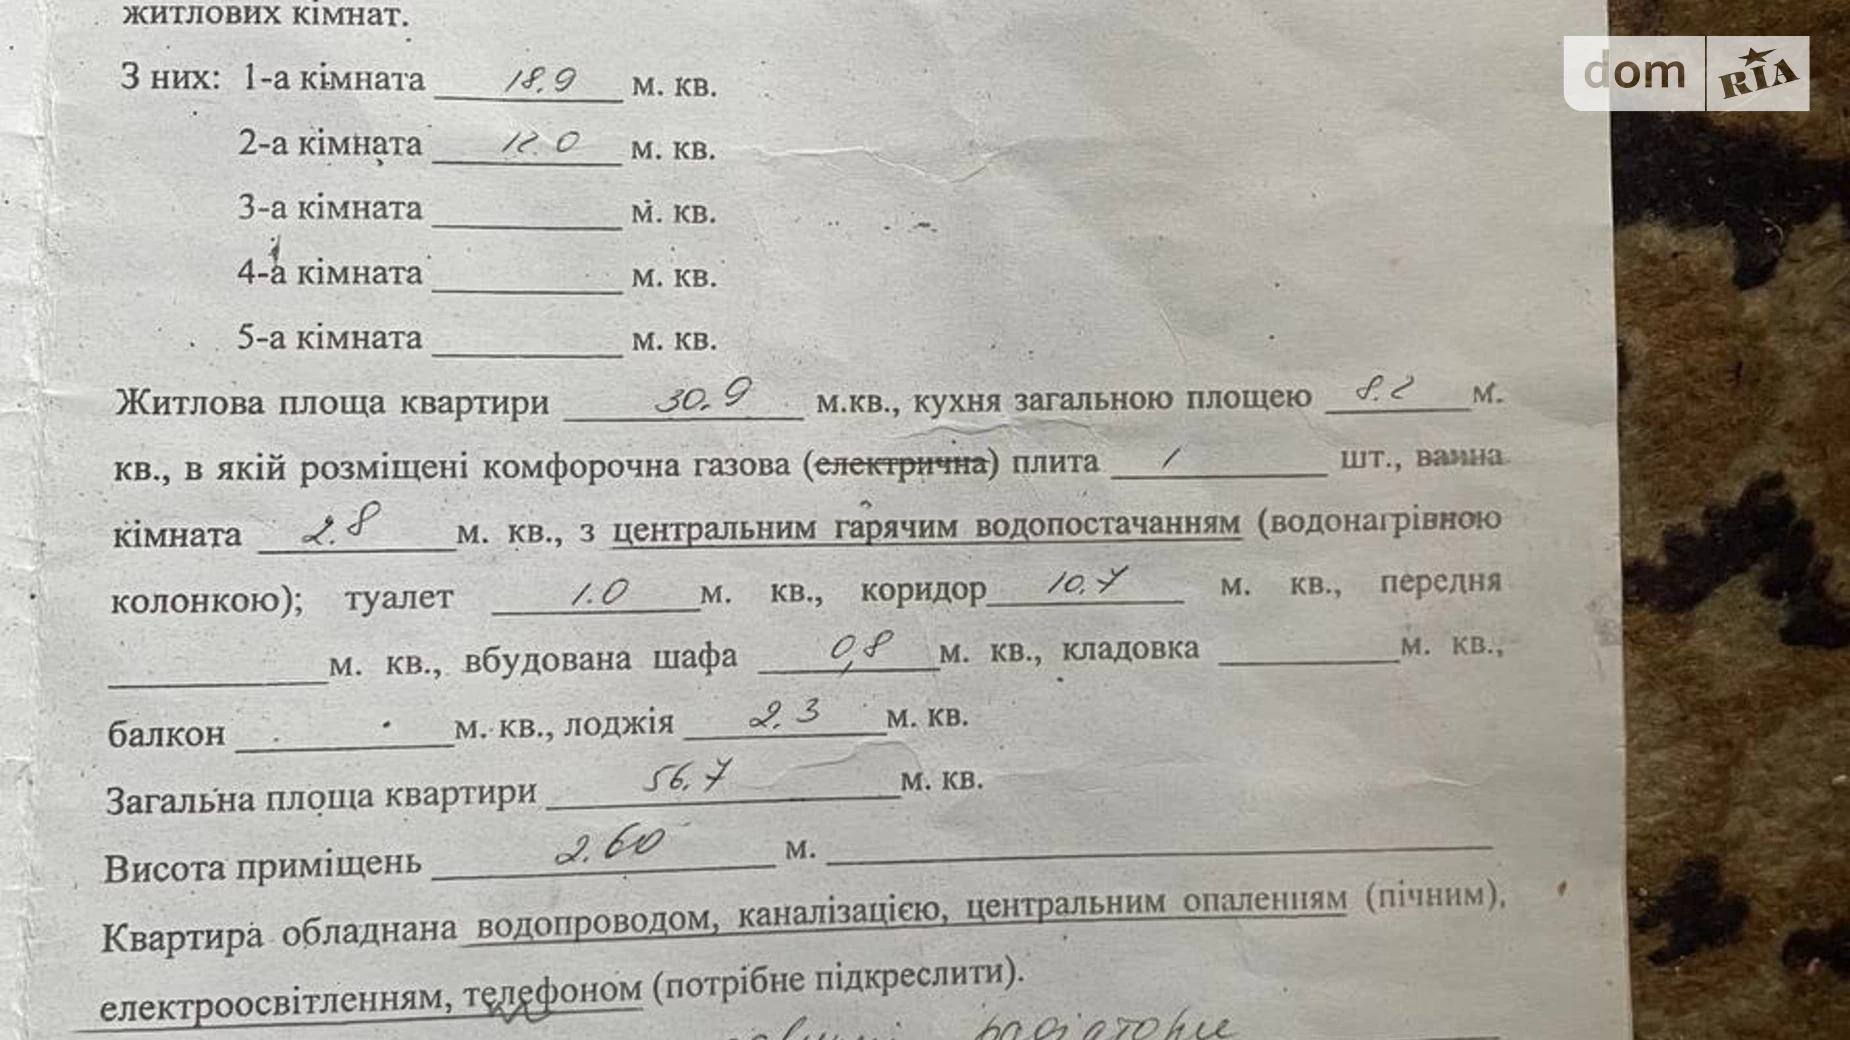 житлових кімнат.
dom RIA
З них: 1-а кімната 18.9 м. кв.
2-а кімната 12.0 м. кв.
3-а кімната м. кв.
4-а кімната м. кв.
5-а кімната м. кв.
Житлова площа квартири 30.9 м.кв., кухня загальною площею 8.2 м.
кв., в якій розміщені комфорочна газова (електрична) плита 1 шт., ванна
кімната 2.8 м. кв., з центральним гарячим водопостачанням (водонагрівною
колонкою); туалет 1.0 м. кв., коридор 10.7 м. кв., передня
м. кв., вбудована шафа 0,8 м. кв., кладовка м. кв.,
балкон м. кв., лоджія 2.3 м. кв.
Загальна площа квартири 56.7 м. кв.
Висота приміщень 2.60 м.
Квартира обладнана водопроводом, каналізацією, центральним опаленням (пічним),
електроосвітленням, телефоном (потрібне підкреслити).
радіатори